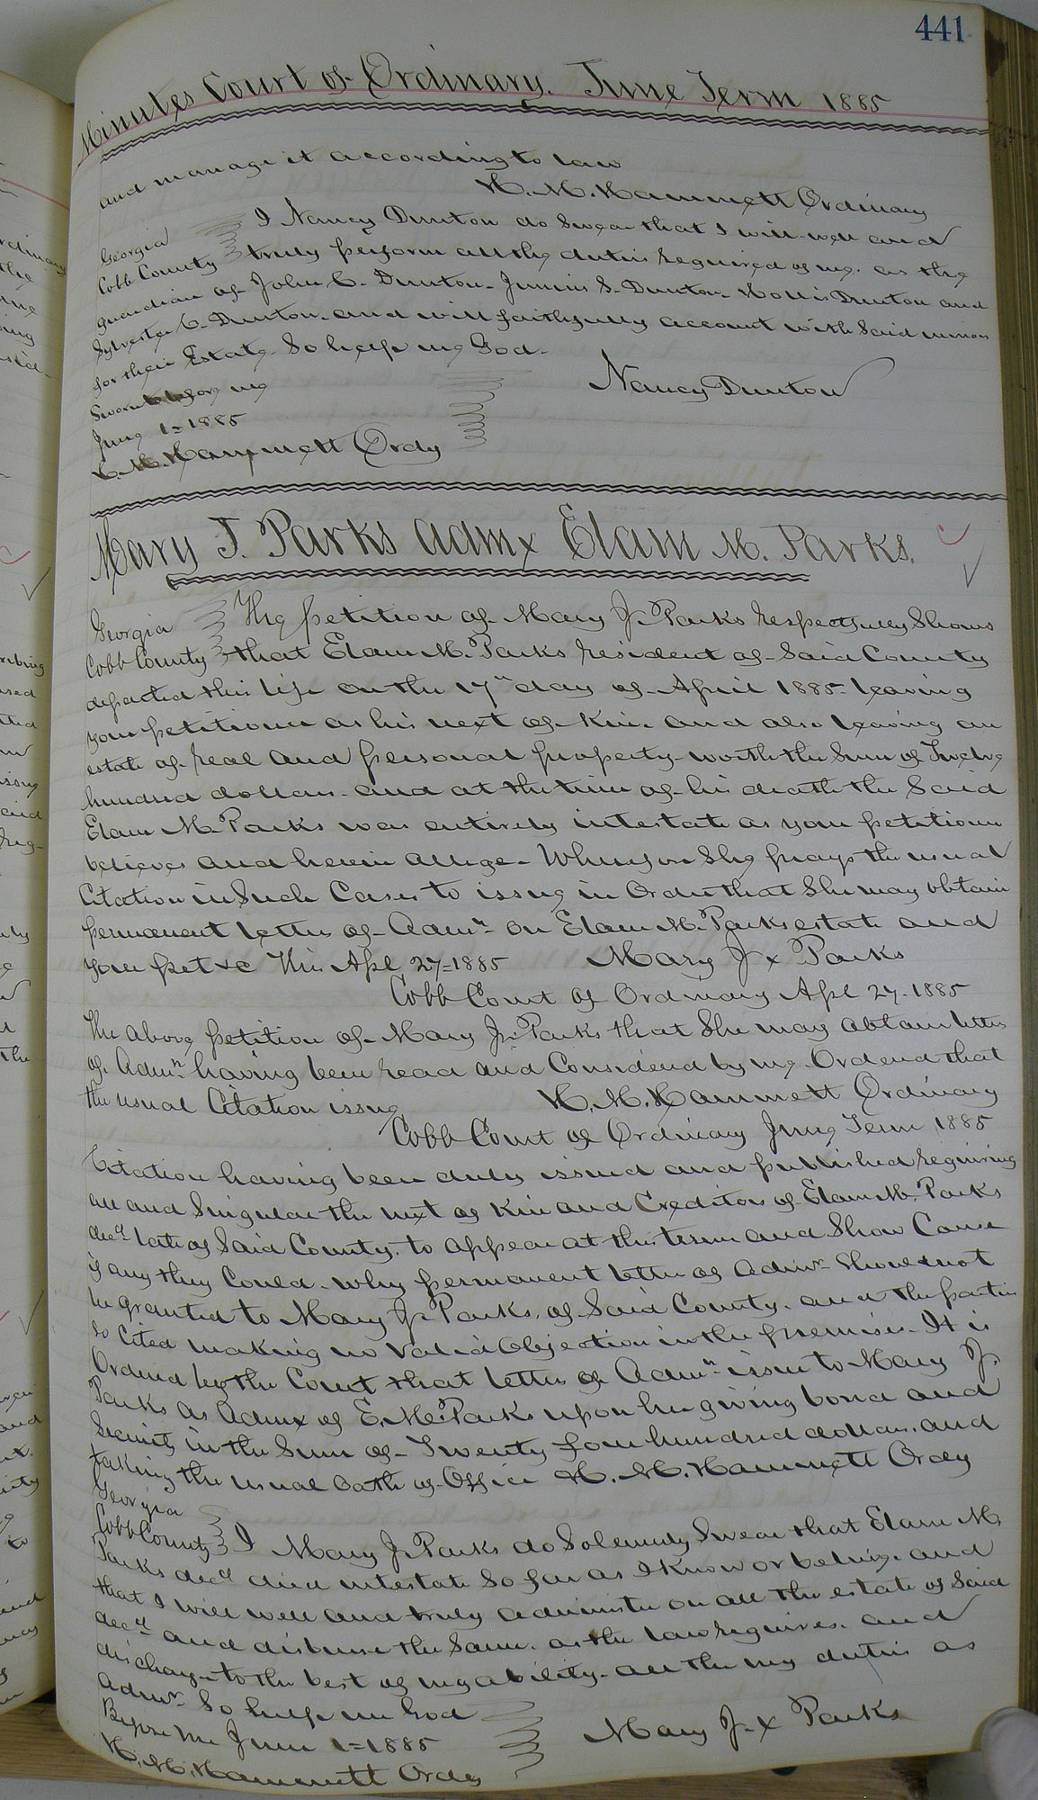 441
Minutes Court of Ordinary. June Term 1885
and manage it according to law
H. M. Hammett Ordinary
Georgia I Nancy Dunton do Swear that I will well and
Cobb County truly perform all the duties required of me as the
guardian of John C. Dunton Junius S. Dunton Hollis Dunton and
Sylvester C. Dunton and will faithfully account with Said minors
for their Estate So help me God.
Sworn to before me Nancy Dunton
June 1=1885
H. M. Hammett Ordy
Mary J. Parks admx Elam M. Parks.
Georgia The petition of Mary J. Parks respectfully Shows
Cobb County that Elam M. Parks resident of Said County
departed this life on the 17th day of April 1885 leaving
your petitioner as his next of Kin and also leaving an
estate of real and personal property worth the Sum of Twelve
hundred dollars and at the time of his death the Said
Elam M. Parks was entirely intestate as your petitioner
believes and herein allege. Wherefore She prays the usual
Citation in Such Cases to issue in Order that She may obtain
permanent letters of Admn on Elam M. Parks estate and
your pet &c This Apl 27=1885 Mary J x Parks
Cobb Court of Ordinary Apl 27. 1885
The above petition of Mary J. Parks that She may obtain letters
of Admn having been read and Considered by me Ordered that
the usual Citation issue H. M. Hammett Ordinary
Cobb Court of Ordinary June Term 1885
Citation having been duly issued and published requiring
all and Singular the next of Kin and Creditors of Elam M. Parks
decd late of Said County to appear at this term and Show Cause
if any they Could why permanent letters of Admn Should not
be granted to Mary J. Parks, of Said County. and the parties
So Cited making no Valid Objection in the premises. It is
Ordered by the Court that letters of Admn issue to Mary J
Parks as Admx of E. M. Parks upon her giving bond and
Security in the Sum of Twenty four hundred dollars, and
taking the usual oath of Office H. M. Hammett Ordy
Georgia
Cobb County I Mary J. Parks do Solemnly Swear that Elam M.
Parks decd died intestate So far as I Know or believe. and
that I will well and truly administer on all the estate of Said
decd and disburse the Same. as the law requires. and
discharge to the best of my ability all the my duties as
Admr. So help me God
Before Me June 1=1885 Mary J. x Parks
H. M. Hammett Ordy